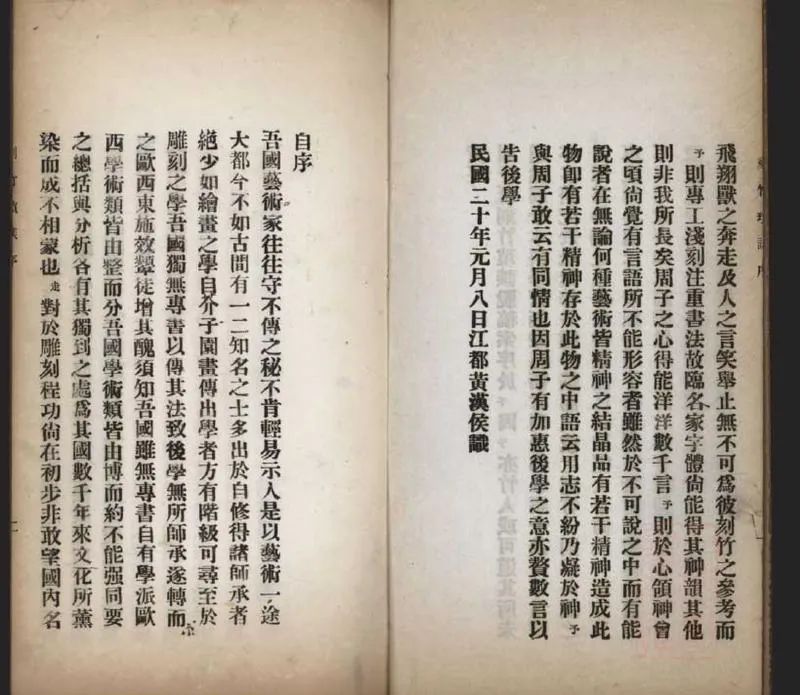 飛翔獸之奔走及人之言笑舉止無不可爲彼刻竹之參考而
予則專工淺刻注重書法故臨名家字體尙能得其神韻其他
則非我所長矣周子之心得能洋洋數千言予則於心領神會
之頃尙覺有言語所不能形容者雖然於不可說之中而有能
說者在無論何種藝術皆精神之結晶品有若干精神造成此
物卽有若干精神存於此物之中語云用志不紛乃凝於神予
與周子敢云有同情也因周子有加惠後學之意亦贅數言以
告後學
民國二十年元月八日江都黃漢侯識
自序
吾國藝術家往往守不傳之秘不肯輕易示人是以藝術一途
大都今不如古間有一二知名之士多出於自修得諸師承者
絕少如繪畫之學自芥子園畫傳出學者方有階級可尋至於
雕刻之學吾國獨無專書以傳其法致後學無所師承遂轉而
之歐西東施效顰徒增其醜須知吾國雖無專書自有學派歐
西學術類皆由整而分吾國學術類皆由博而約不能强同要
之總括與分析各有其獨到之處爲其國數千年來文化所薰
染而成不相蒙也走對於雕刻程功尙在初步非敢望國內名